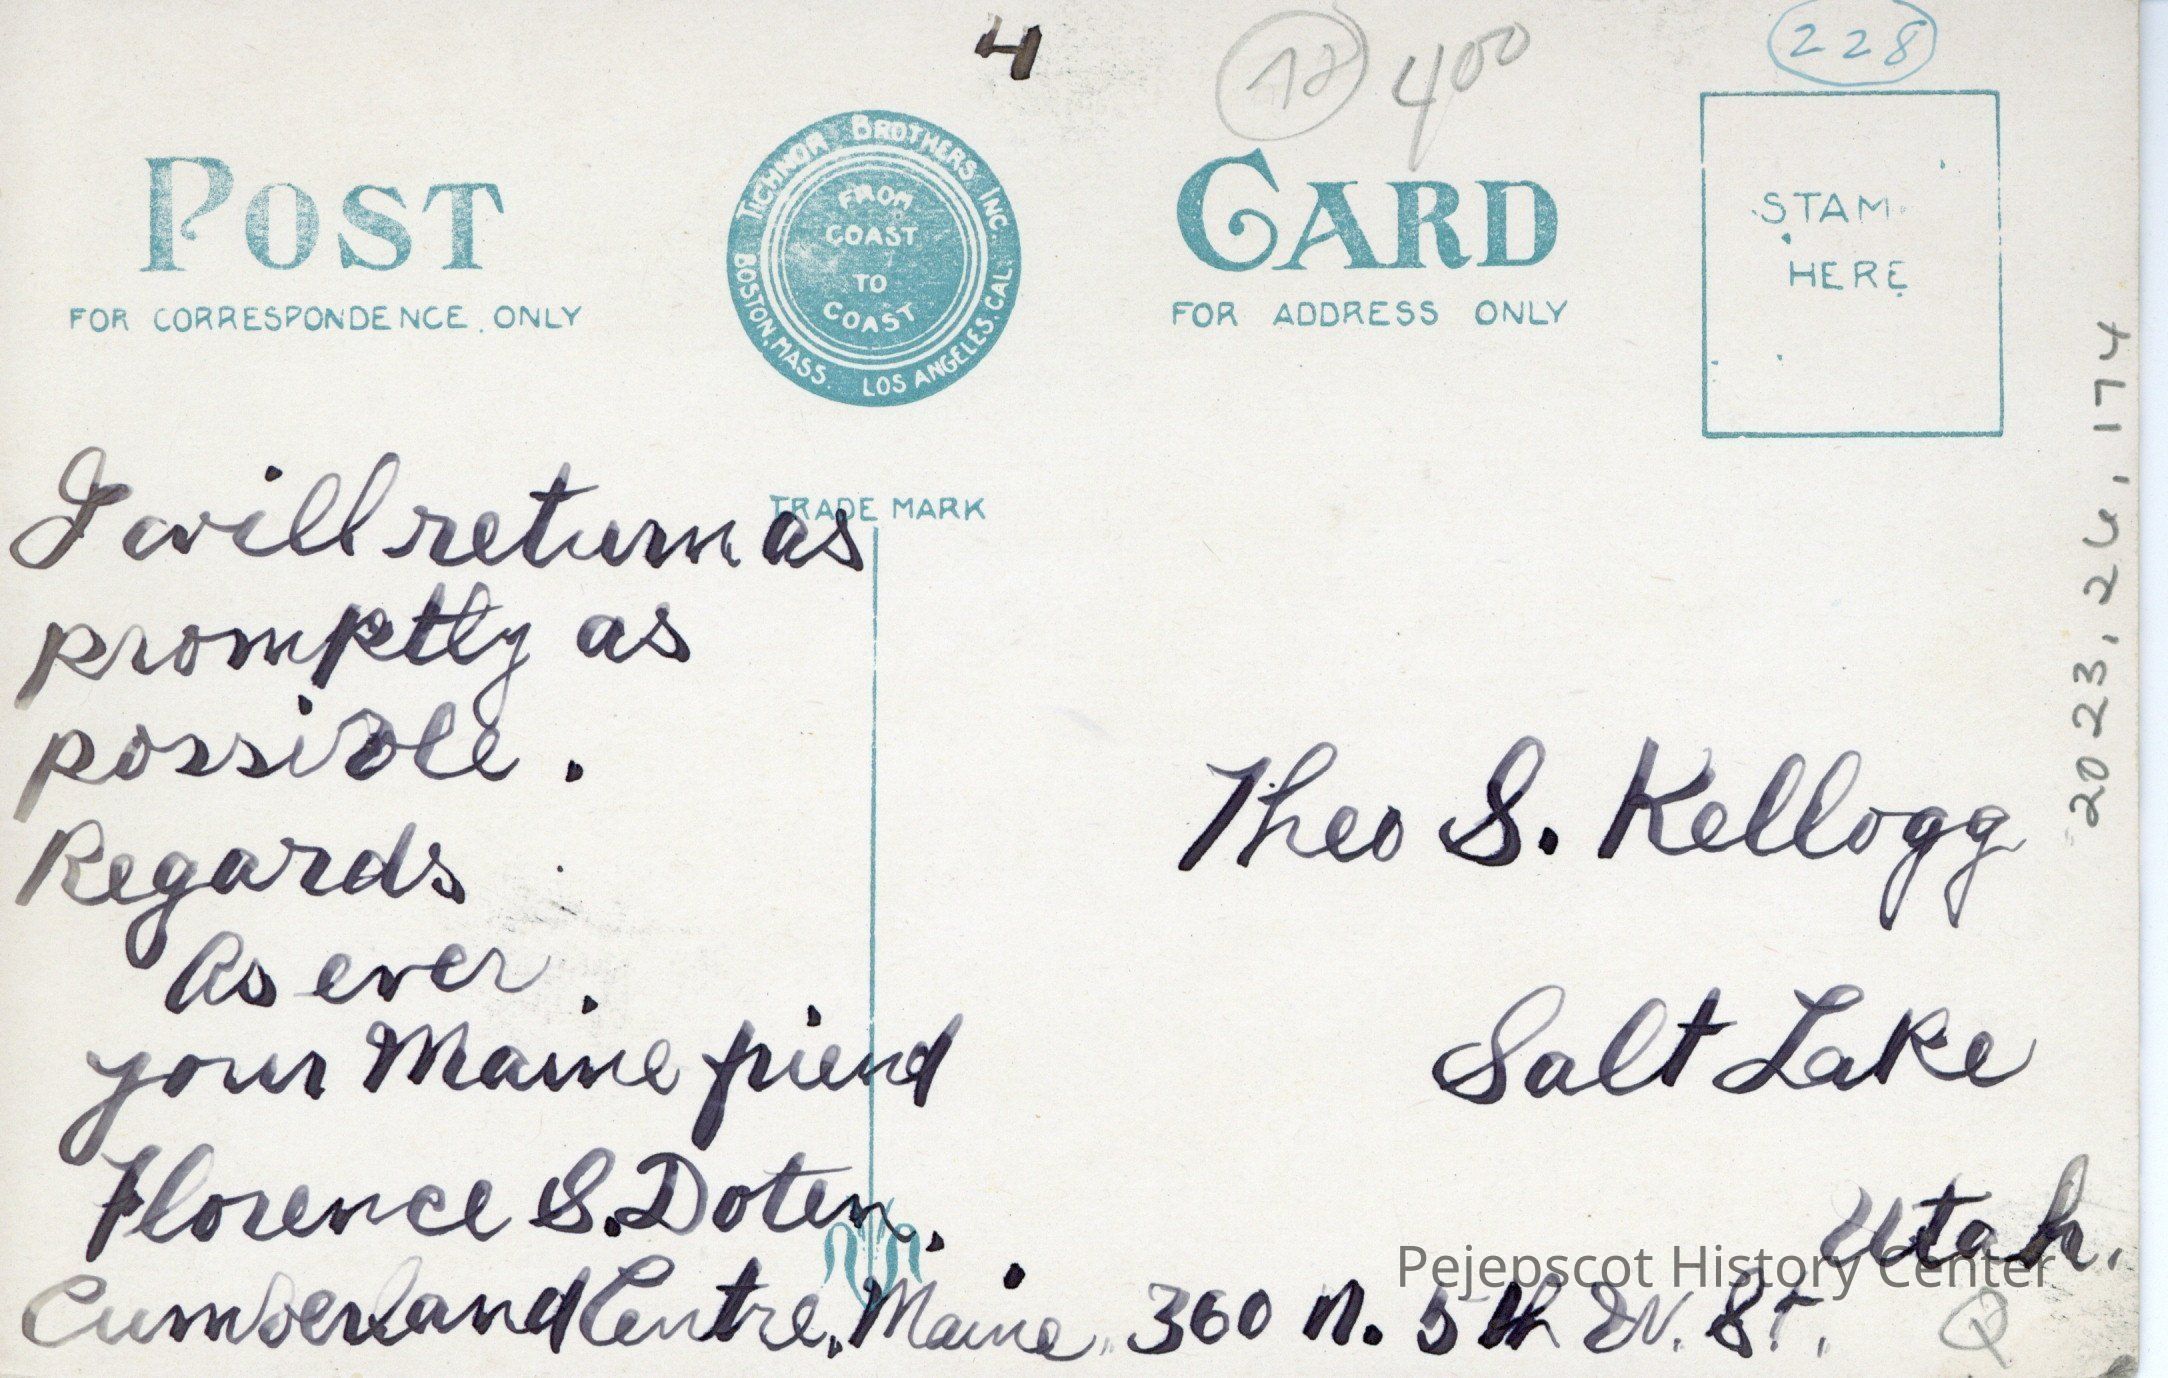 4
400
228
POST
CARD
TICHNOR BROTHERS INC.
BOSTON, MASS. LOS ANGELES, CAL.
FROM
COAST
TO
COAST
STAM
HERE
FOR CORRESPONDENCE ONLY
FOR ADDRESS ONLY
TRADE MARK
2023.24.174
I will return as
promptly as
possible.
Regards
As ever.
your Maine friend
Florence S. Doten.
Cumberland Centre, Maine.
Theo S. Kellogg
Salt Lake
Utah.
360 N. 5th W. St.
Pejepscot History Center